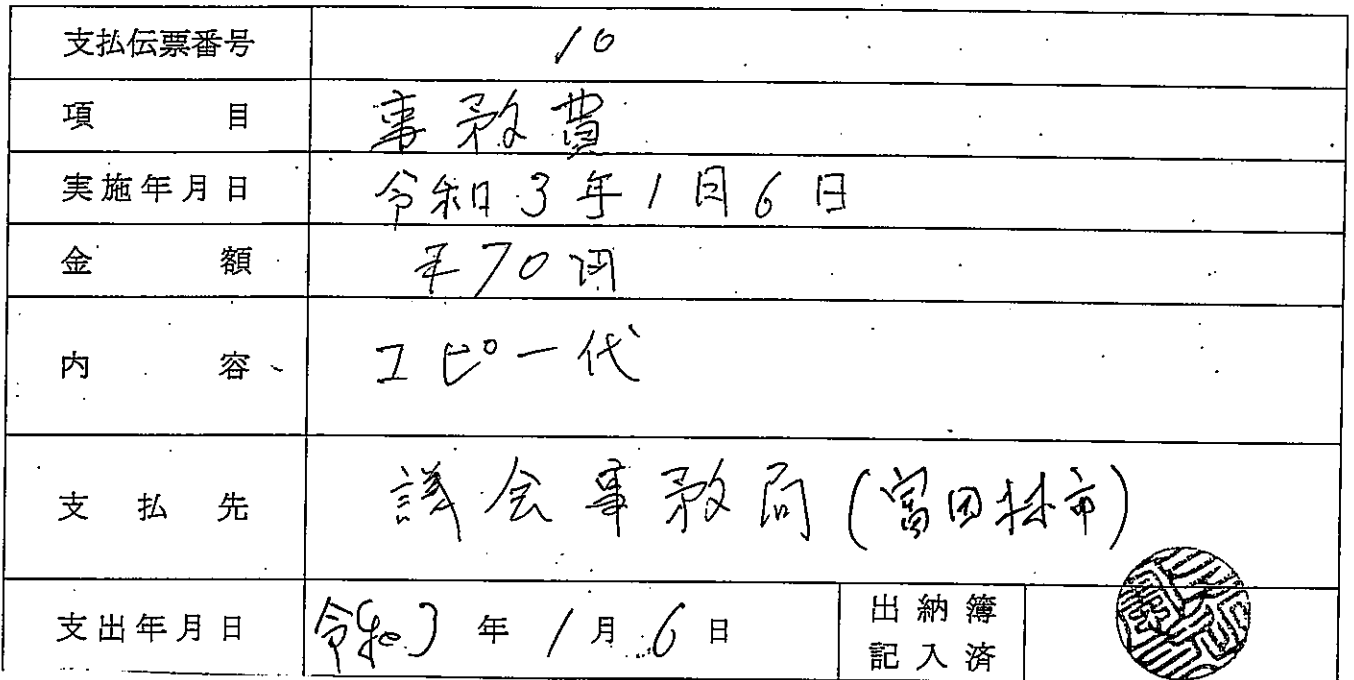 支払伝票番号 10
項目 事務費
実施年月日 令和3年1月6日
金額 ¥70円
内容 コピー代
支払先 議会事務局(富田林市)
支出年月日 令和3年1月6日 出納簿
記入済